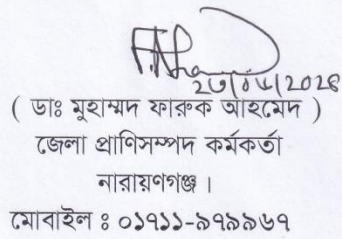 ( ডাঃ মুহাম্মদ ফারুক আহমেদ )
জেলা প্রাণিসম্পদ কর্মকর্তা
নারায়ণগঞ্জ ।
মোবাইল ঃ ০১৭১১-৯৭৯৯৬৭